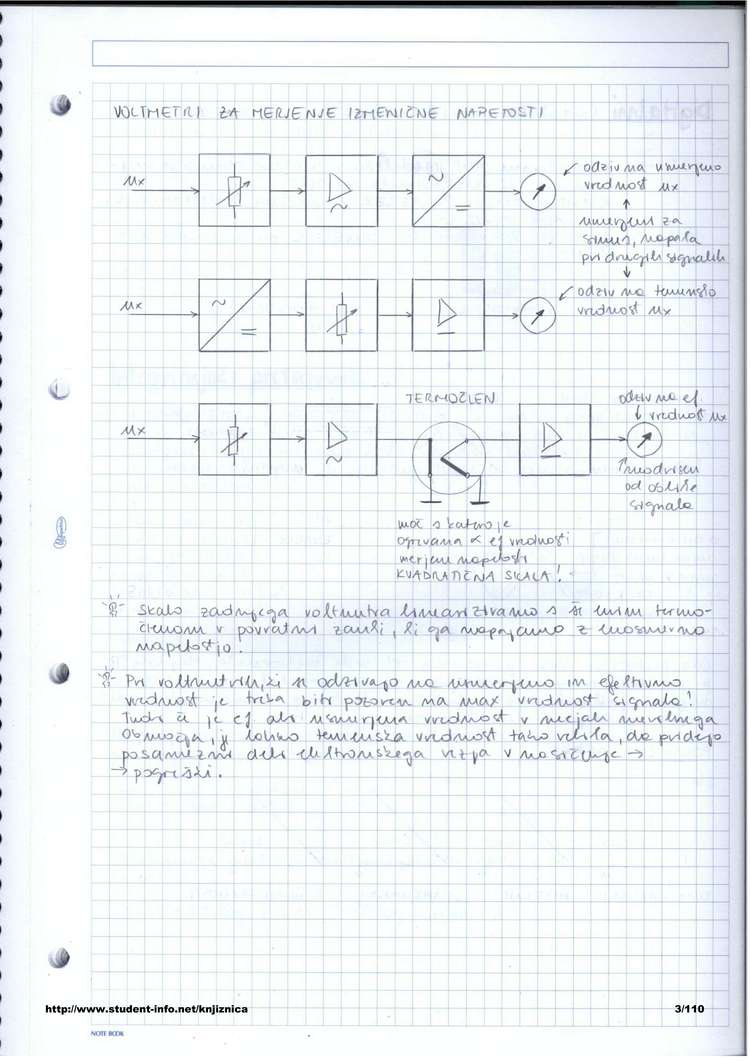 VOLTMETRI ZA MERJENJE IZMENIČNE NAPETOSTI
ux
~
~
=
odziv na usmerjeno
vrednost ux
umerjeni za
sinus, napaka
pri drugih signalih
odziv na temensko
vrednost ux
ux
~
=
TERMOČLEN
odziv na ef.
vrednost ux
ux
~
neodvisen
od oblike
signala
moč s katero je
ogrevana ∝ ef vrednosti
merjene napetosti
KVADRATIČNA SKALA!
Skalo zadnjega voltmetra lineariziramo s še enim termo-
členom v povratni zanki, ki ga napajamo z enosmerno
napetostjo.
Pri voltmetrih, ki se odzivajo na usmerjeno in efektivno
vrednost je treba biti pozoren na max vrednost signala!
Tudi če je ef ali usmerjena vrednost v mejah merilnega
območja, je lahko temenska vrednost tako velika, da pridejo
posamezni deli elektronskega vezja v nasičenje →
→ pogreški.
http://www.student-info.net/knjiznica
3/110
NOTE BOOK